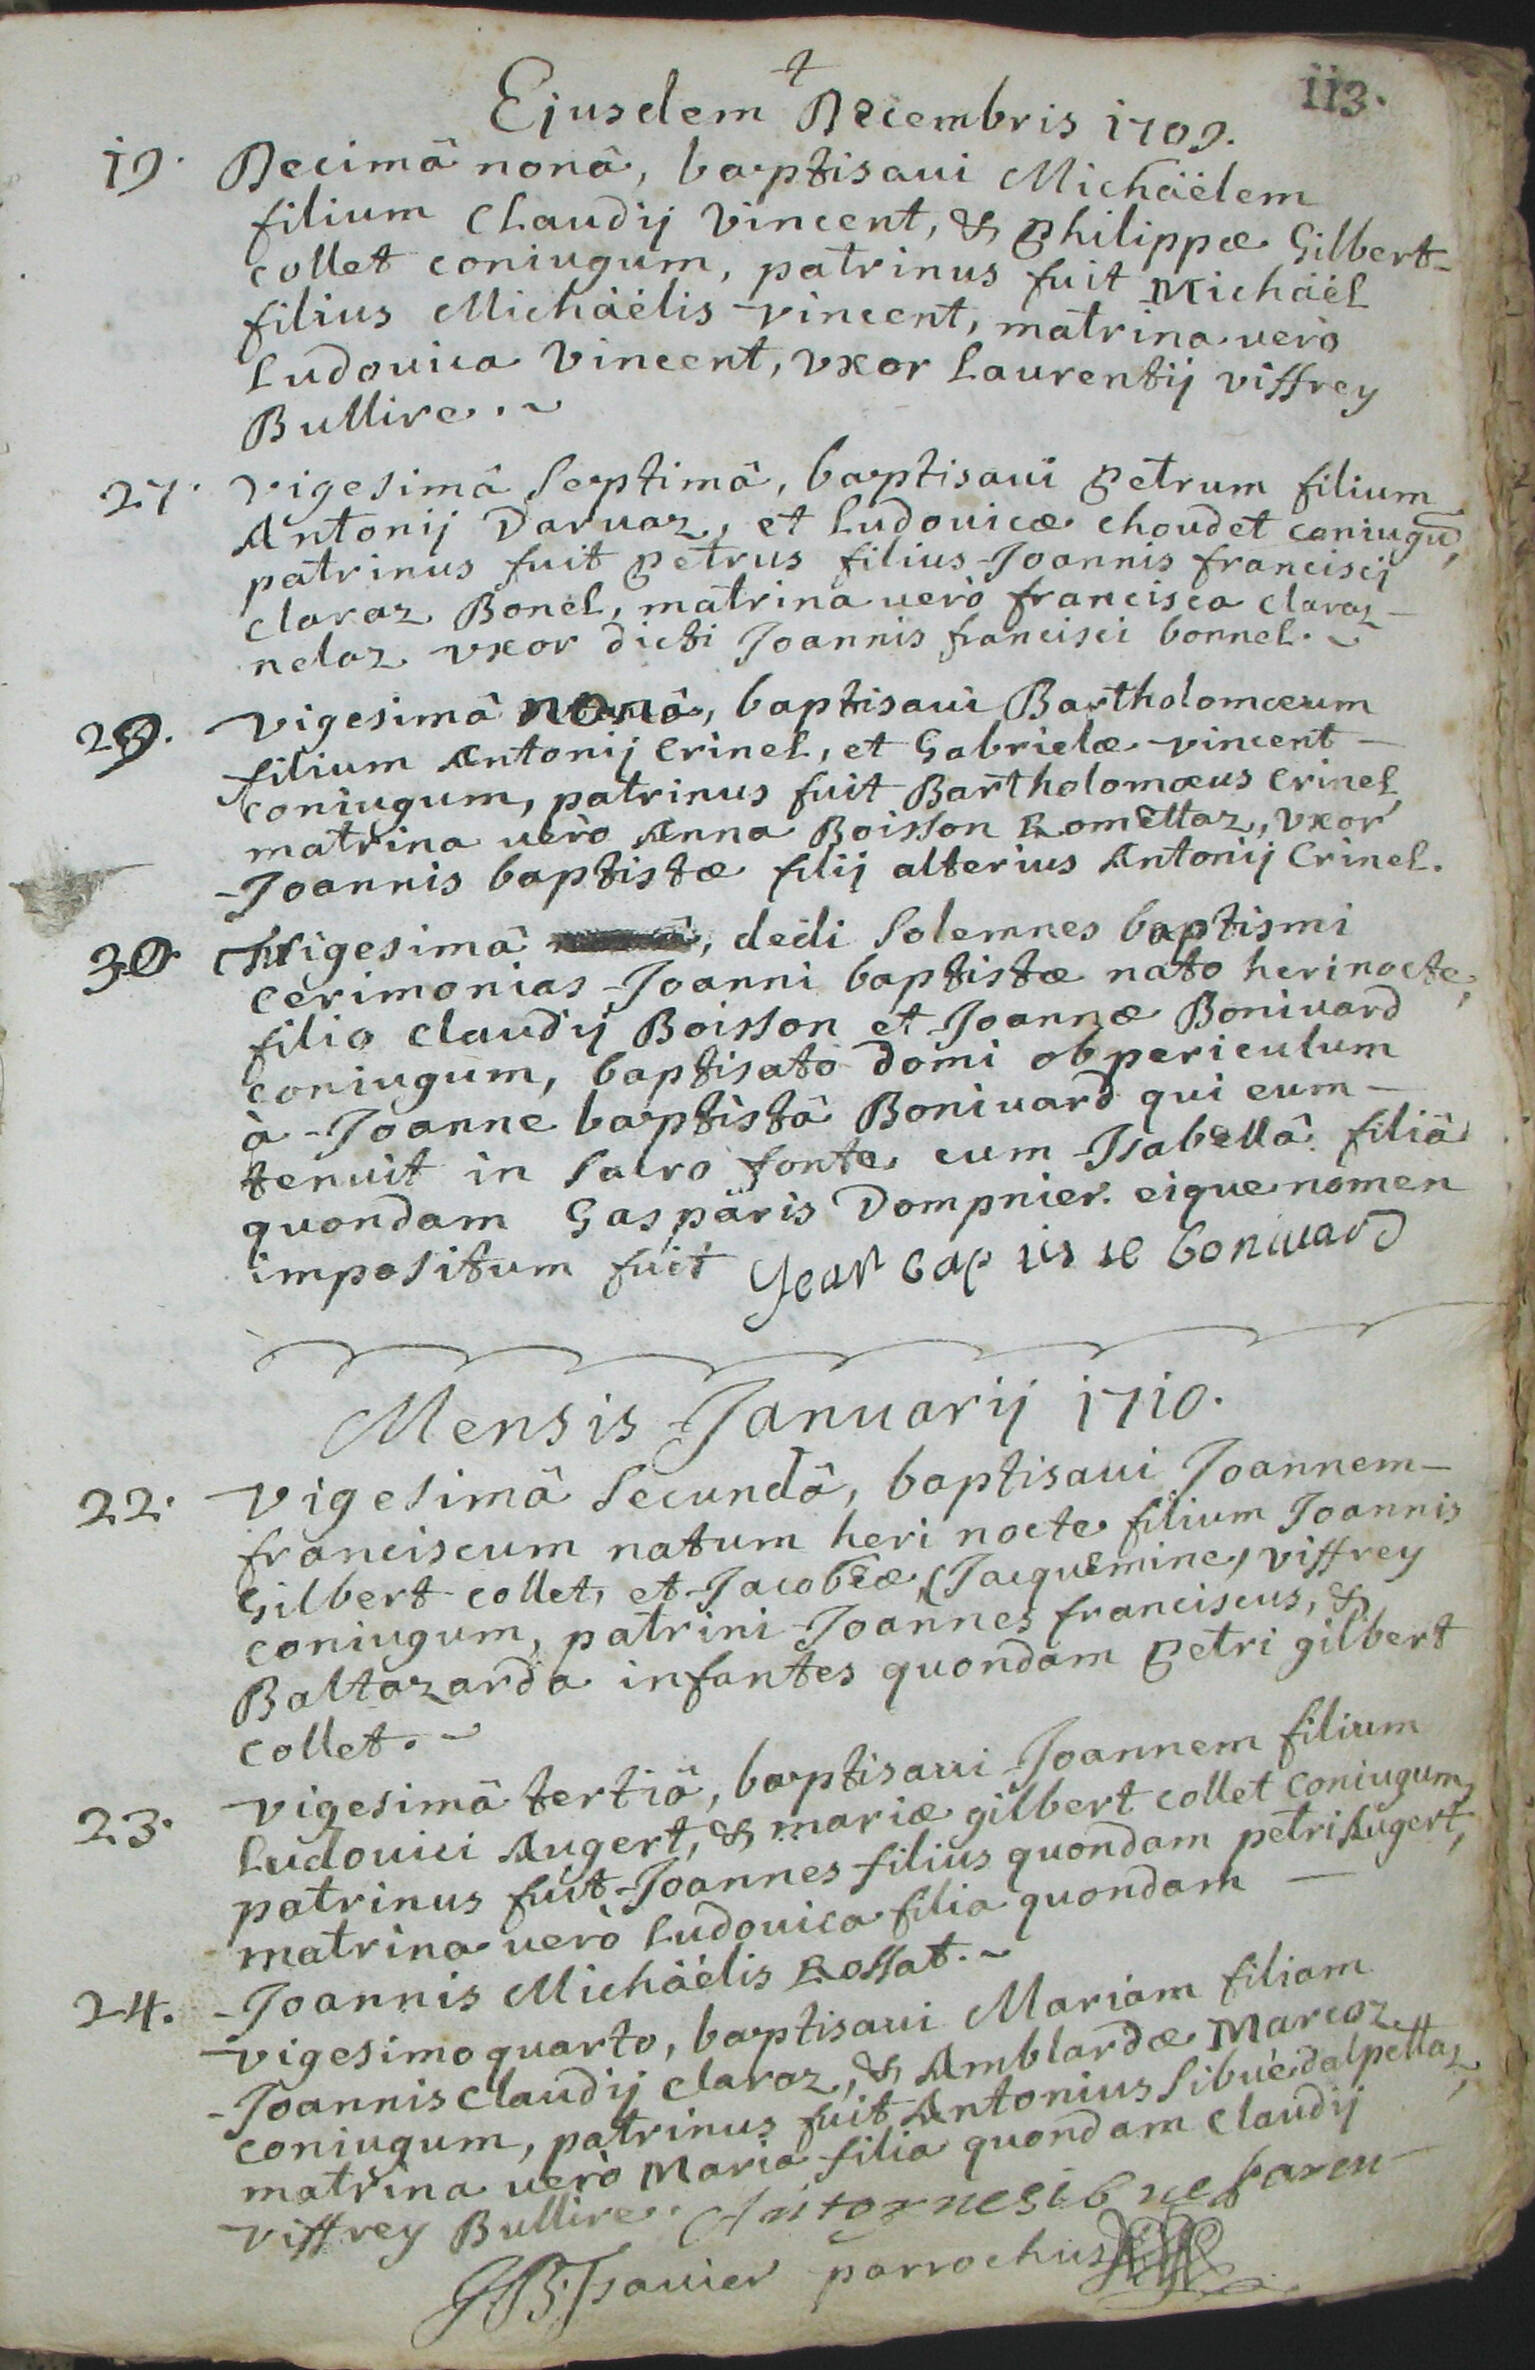 113.
Ejusdem Decembris 1709.
19. Decimâ nonâ, baptisaui Michäëlem
filium Claudij Vincent, & philippæ Gilbert-
collet coniugum, patrinus fuit Michäël
filius Michäëlis vincent, matrina verò
Ludouica Vincent, vxor Laurentij viffrey
Bullire.~
27. vigesimâ septimâ, baptisaui petrum filium
Antonij Daruaz, et Ludouicæ choudet coniugũ,
patrinus fuit petrus filius Joannis francisij
claraz Bonel, matrina uerò francisca claraz-
nelaz vxor dicti Joannis francisci bonnel.~
29. vigesimâ nonâ, baptisaui Bartholomæum
filium Antonij Crinel, et Gabrielæ vincent-
coniugum, patrinus fuit Bartholomæus Crinel,
matrina uerò Anna Boisson Romettaz, vxor
Joannis baptistæ filij alterius Antonij Crinel.
30 Trigesimâ, dedi solemnes baptismi
cerimonias Joanni baptistæ nato heri nocte,
filio claudij Boisson et Joannæ Boniuard
coniugum, baptisato domi ob periculum
à Joanne baptistâ Boniuard qui eum-
tenuit in sacro fonte cum Isabellâ filiâ
quondam Gasparis Dompnier. eique nomen
impositum fuit Jean bap tis te boniuard
Mensis Januarij 1710.
22. vigesimâ secundâ, baptisaui Joannem-
franciscum natum heri nocte filium Joannis
Gilbert-collet, et Jacobeæ (Jacquemine) viffrey
coniugum, patrini Joannes franciscus, &
Baltazarda infantes quondam petri gilbert
collet.~
23. vigesimâ tertiâ, baptisaui Joannem filium
Ludouici Augert, & mariæ gilbert collet coniugum,
patrinus fuit Joannes filius quondam petri Augert,
matrina uerò Ludouica filia quondam-
Joannis Michäëlis Rossat.~
24. vigesimo quarto, baptisaui Mariam filiam
Joannis claudij claraz, & Amblardæ Marcoz
coniugum, patrinus fuit Antonius sibuèdalpettaz,
matrina uerò Maria filia quondam claudij
viffrey Bullire. Antoynesibue paren
parrochus